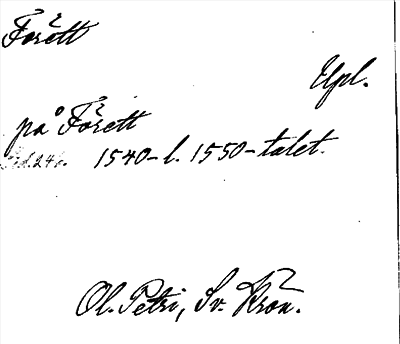 Förett
Upl.
på Förett
Sid. 246. 1540- l. 1550-talet.
Ol. Petri, Sv. Krön.